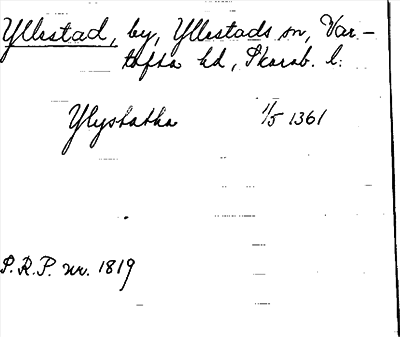 Yllestad, by, Yllestads sn, Var-
tofta hd, Skarab. l.
Ylystatha 1/5 1361
S.R.P. nr. 1819